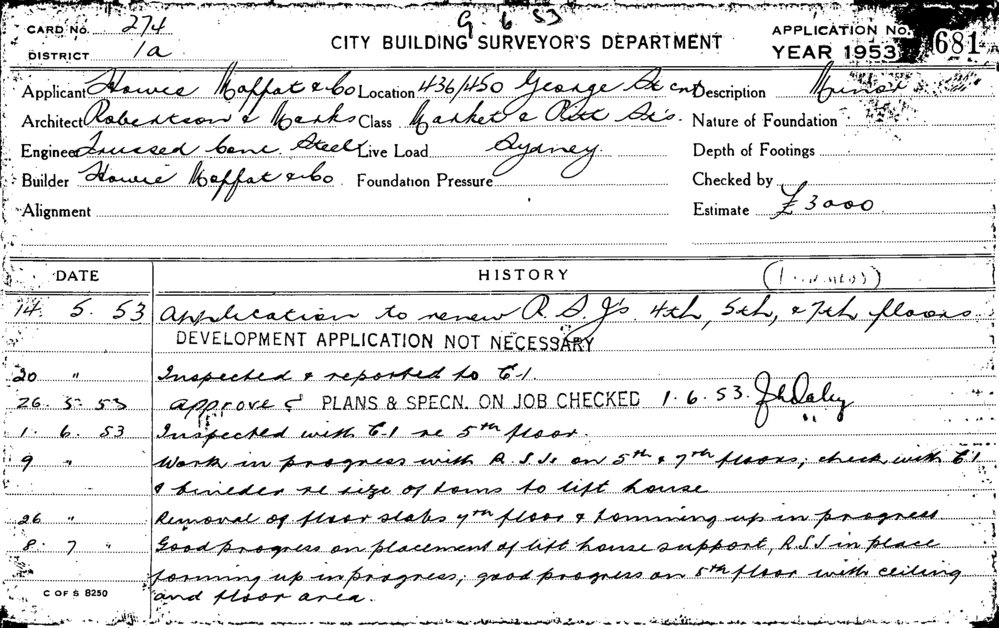 G. 6 53
CARD No. 274
DISTRICT 1a
CITY BUILDING SURVEYOR'S DEPARTMENT
APPLICATION No. 681
YEAR 1953
Applicant Howie Moffat & Co Location 436/450 George St cnr Description Minor
Architect Robertson & Marks Class Market & Pitt Sts. Nature of Foundation
Engineer Trussed Conc Steel Live Load Sydney Depth of Footings
Builder Howie Moffat & Co. Foundation Pressure Checked by
Alignment Estimate £3000
DATE HISTORY
14. 5. 53 Application to renew R.S.J's. 4th, 5th, & 7th floors
DEVELOPMENT APPLICATION NOT NECESSARY
20 " Inspected & reported to C.I.
26. 5. 53 approve PLANS & SPECN. ON JOB CHECKED 1.6.53. J h Daley
1. 6. 53 Inspected with C.I re 5th floor.
9 " Work in progress with R.S.Js on 5th & 7th floors; check with C.I
& builder re size of toms to lift house
26 " Removal of floor slabs 7th floor & tomming up in progress
8. 7 " Good progress on placement of lift house support, R.S.J in place
forming up in progress; good progress on 5th floor with ceiling
and floor area.
C OF S 8250